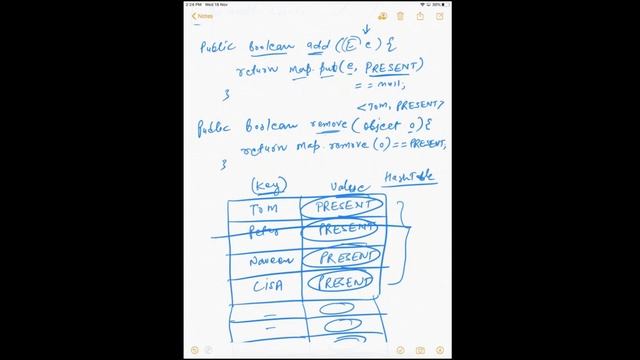 2:24 PM Wed 18 Nov
38%
Notes
Public Boolean add (E e) {
return map.put(e, PRESENT)
== null;
}
<TOM, PRESENT>
Public Boolean remove (object o) {
return map.remove(o) == PRESENT;
}
(Key) Value HashTable
TOM PRESENT
Peter PRESENT
Naveen PRESENT
LISA PRESENT